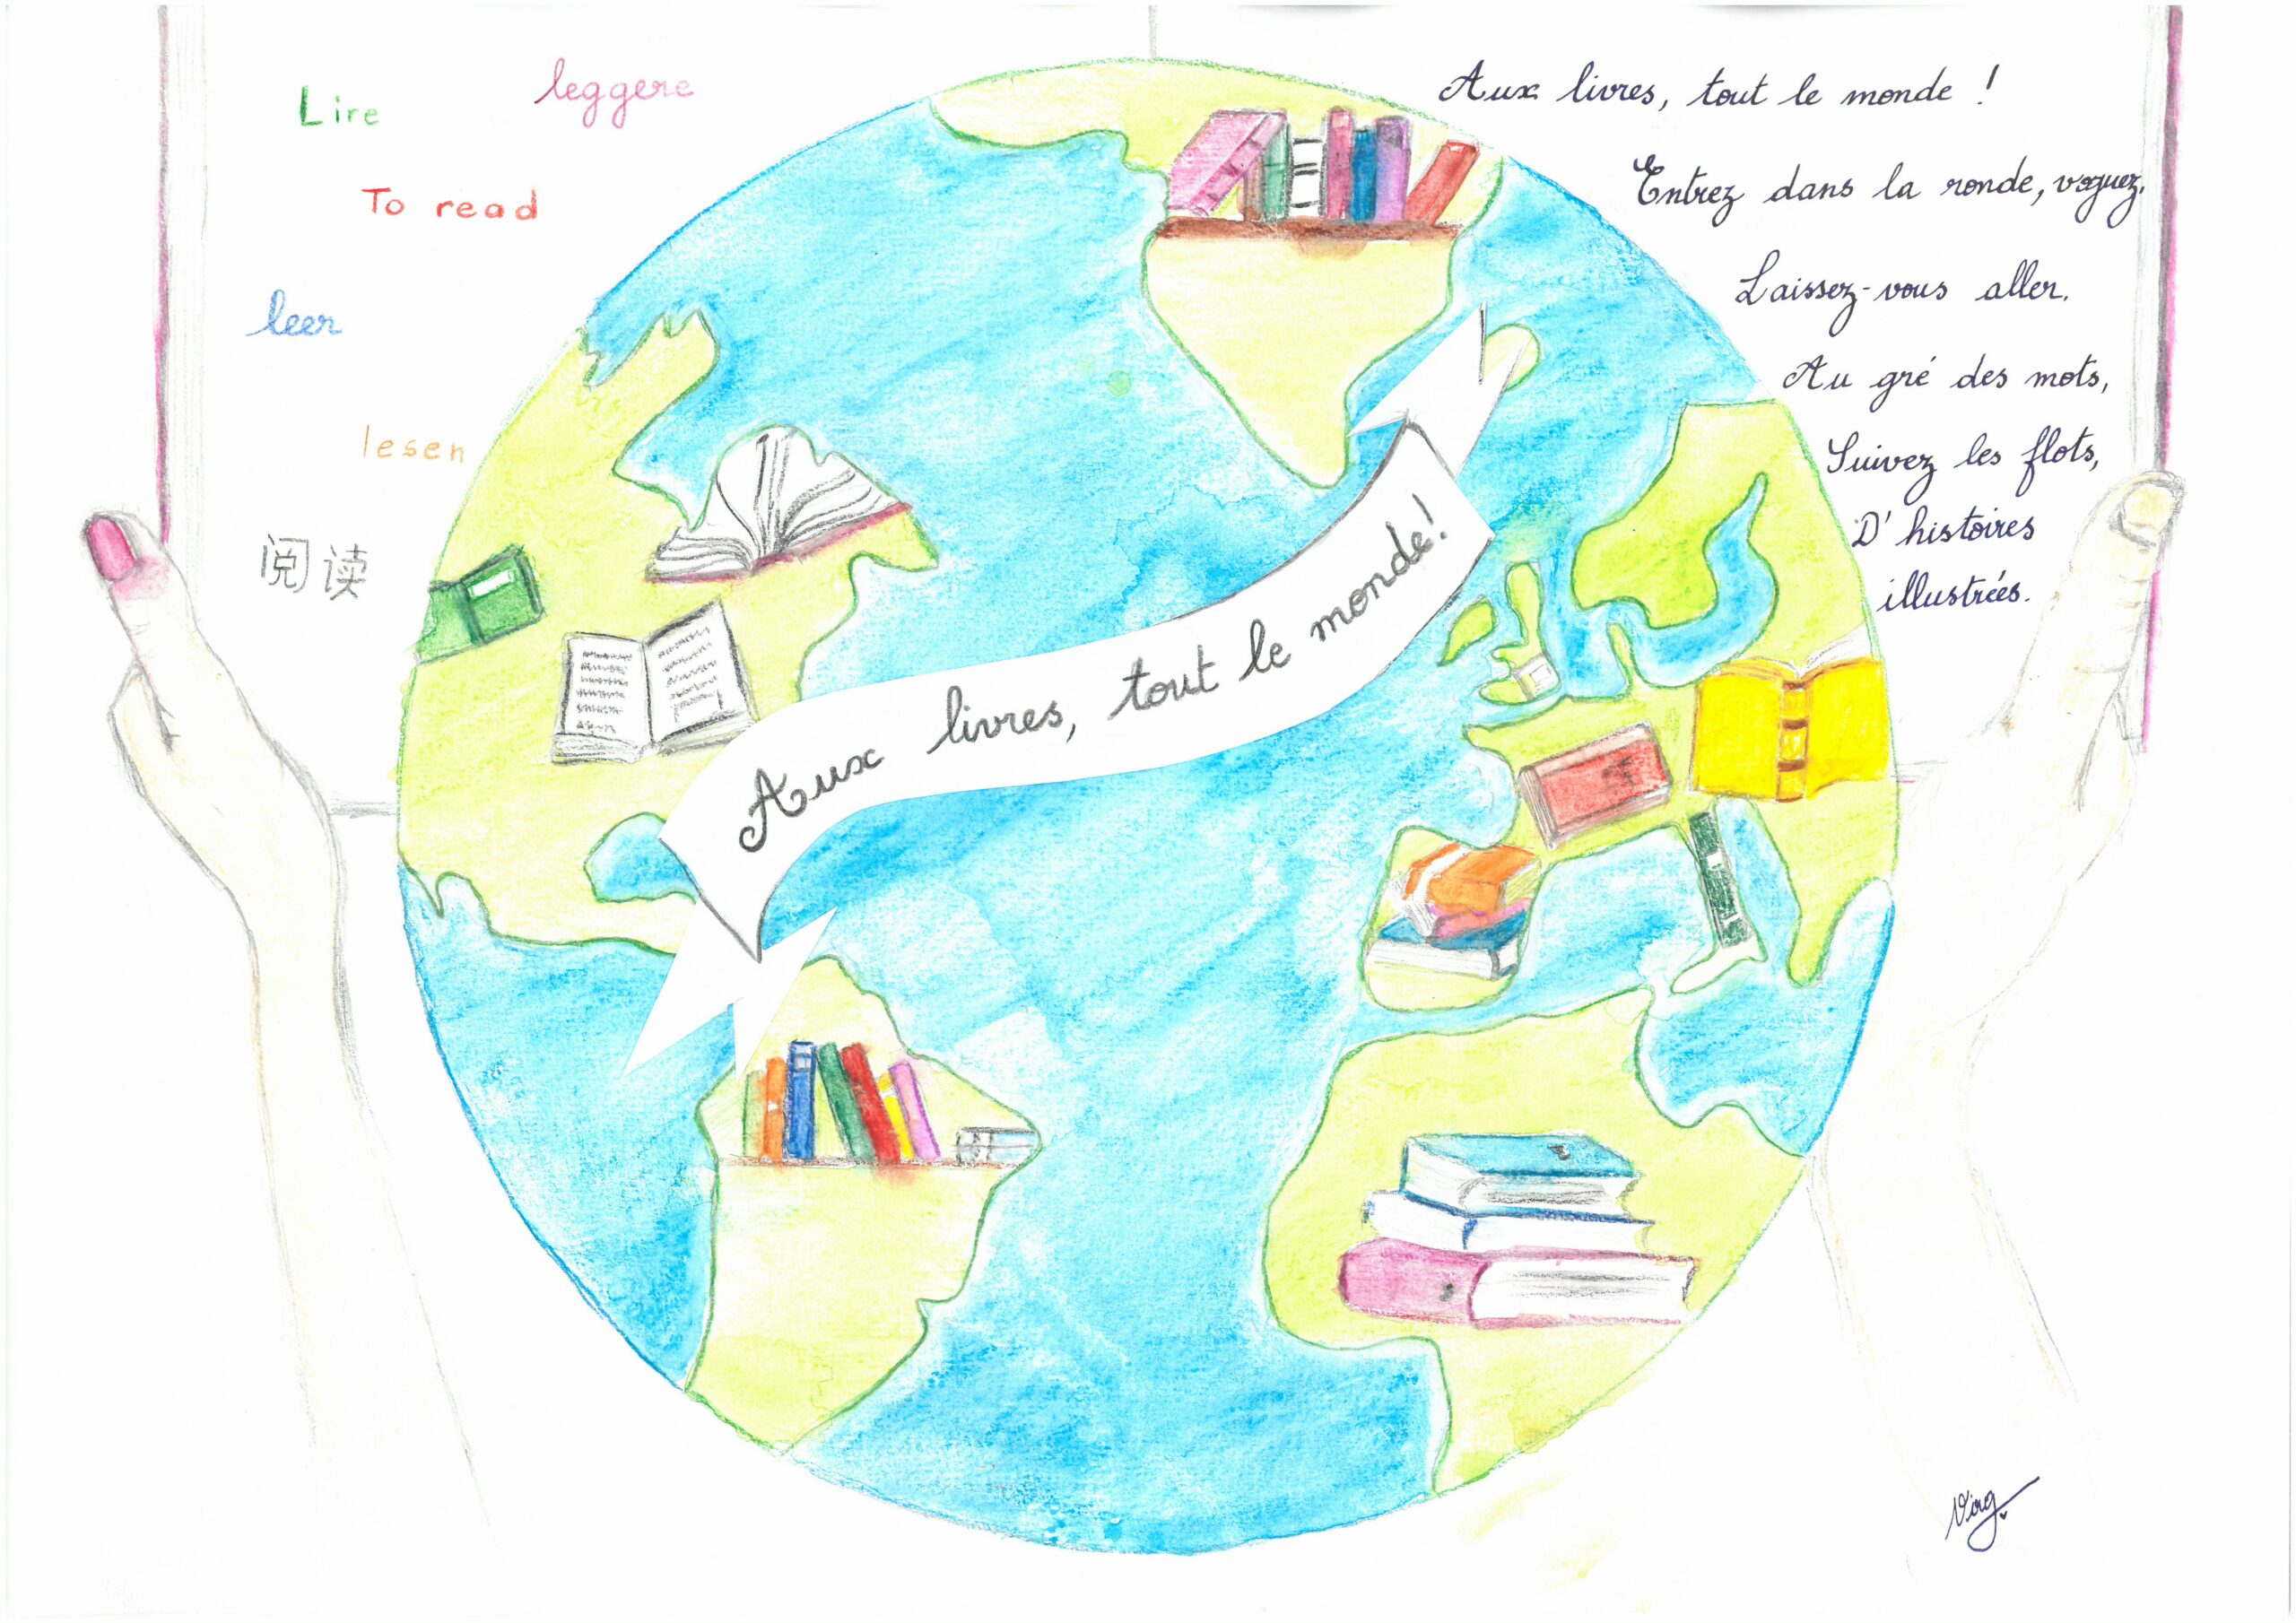 Lire
leggere
To read
leer
lesen
阅读
Aux livres, tout le monde !
Entrez dans la ronde, voguez,
Laissez-vous aller.
Au gré des mots,
Suivez les flots,
D'histoires
illustrées.
Aux livres, tout le monde!
Virg